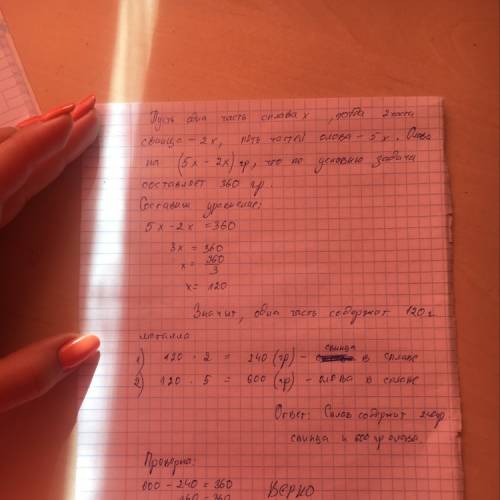 Пусть одна часть сплава x, тогда 2 части
свинца - 2x, пять частей олова - 5x.
на (5x - 2x) гр, что по условию задачи
составляет 360 гр.
Составим уравнение:
5x - 2x = 360
3x = 360
x = 360/3
x = 120
Значит, одна часть содержит 120 г.
металла
1) 120 · 2 = 240 (гр) - свинца в сплаве
2) 120 · 5 = 600 (гр) - олова в сплаве
Ответ: Сплав содержит 240гр.
свинца и 600 гр олова.
Проверка:
600 - 240 = 360
360 = 360 ВЕРНО